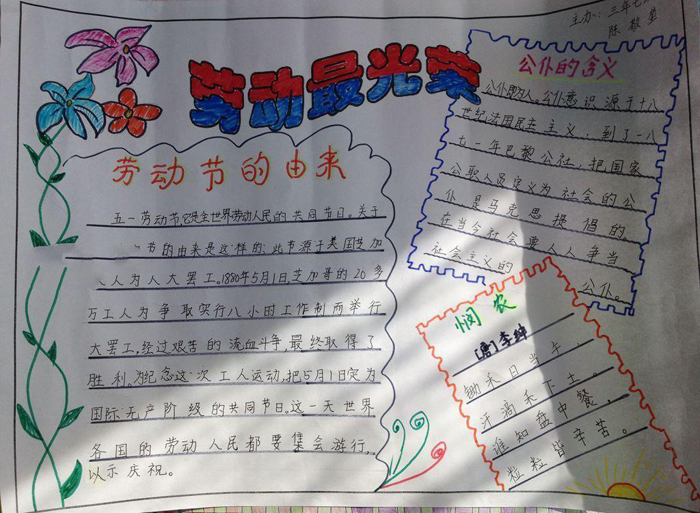 主办:三年七
陈
劳动最光荣
劳动节的由来
五一劳动节它是全世界劳动人民的共同节日。关于
节的由来是这样的:此节源于美国芝加
人为人大罢工。1886年5月1日,芝加哥的20多
万工人为争取实行八小时工作制而举行
大罢工,经过艰苦的流血斗争,最终取得了
胜利。为纪念这次工人运动,把5月1日定为
国际无产阶级的共同节日。这一天世界
各国的劳动人民都要集会游行,
以示庆祝。
公仆的含义
公仆即为人。公仆意识源于十八
世纪法国民主主义,到了一八
七一年巴黎公社,把国家
公职人员定义为社会的公
仆是马克思提倡的。
在当今社会要人人争当
社会主义的
公仆。
悯农
[唐]李绅
锄禾日当午,
汗滴禾下土。
谁知盘中餐,
粒粒皆辛苦。